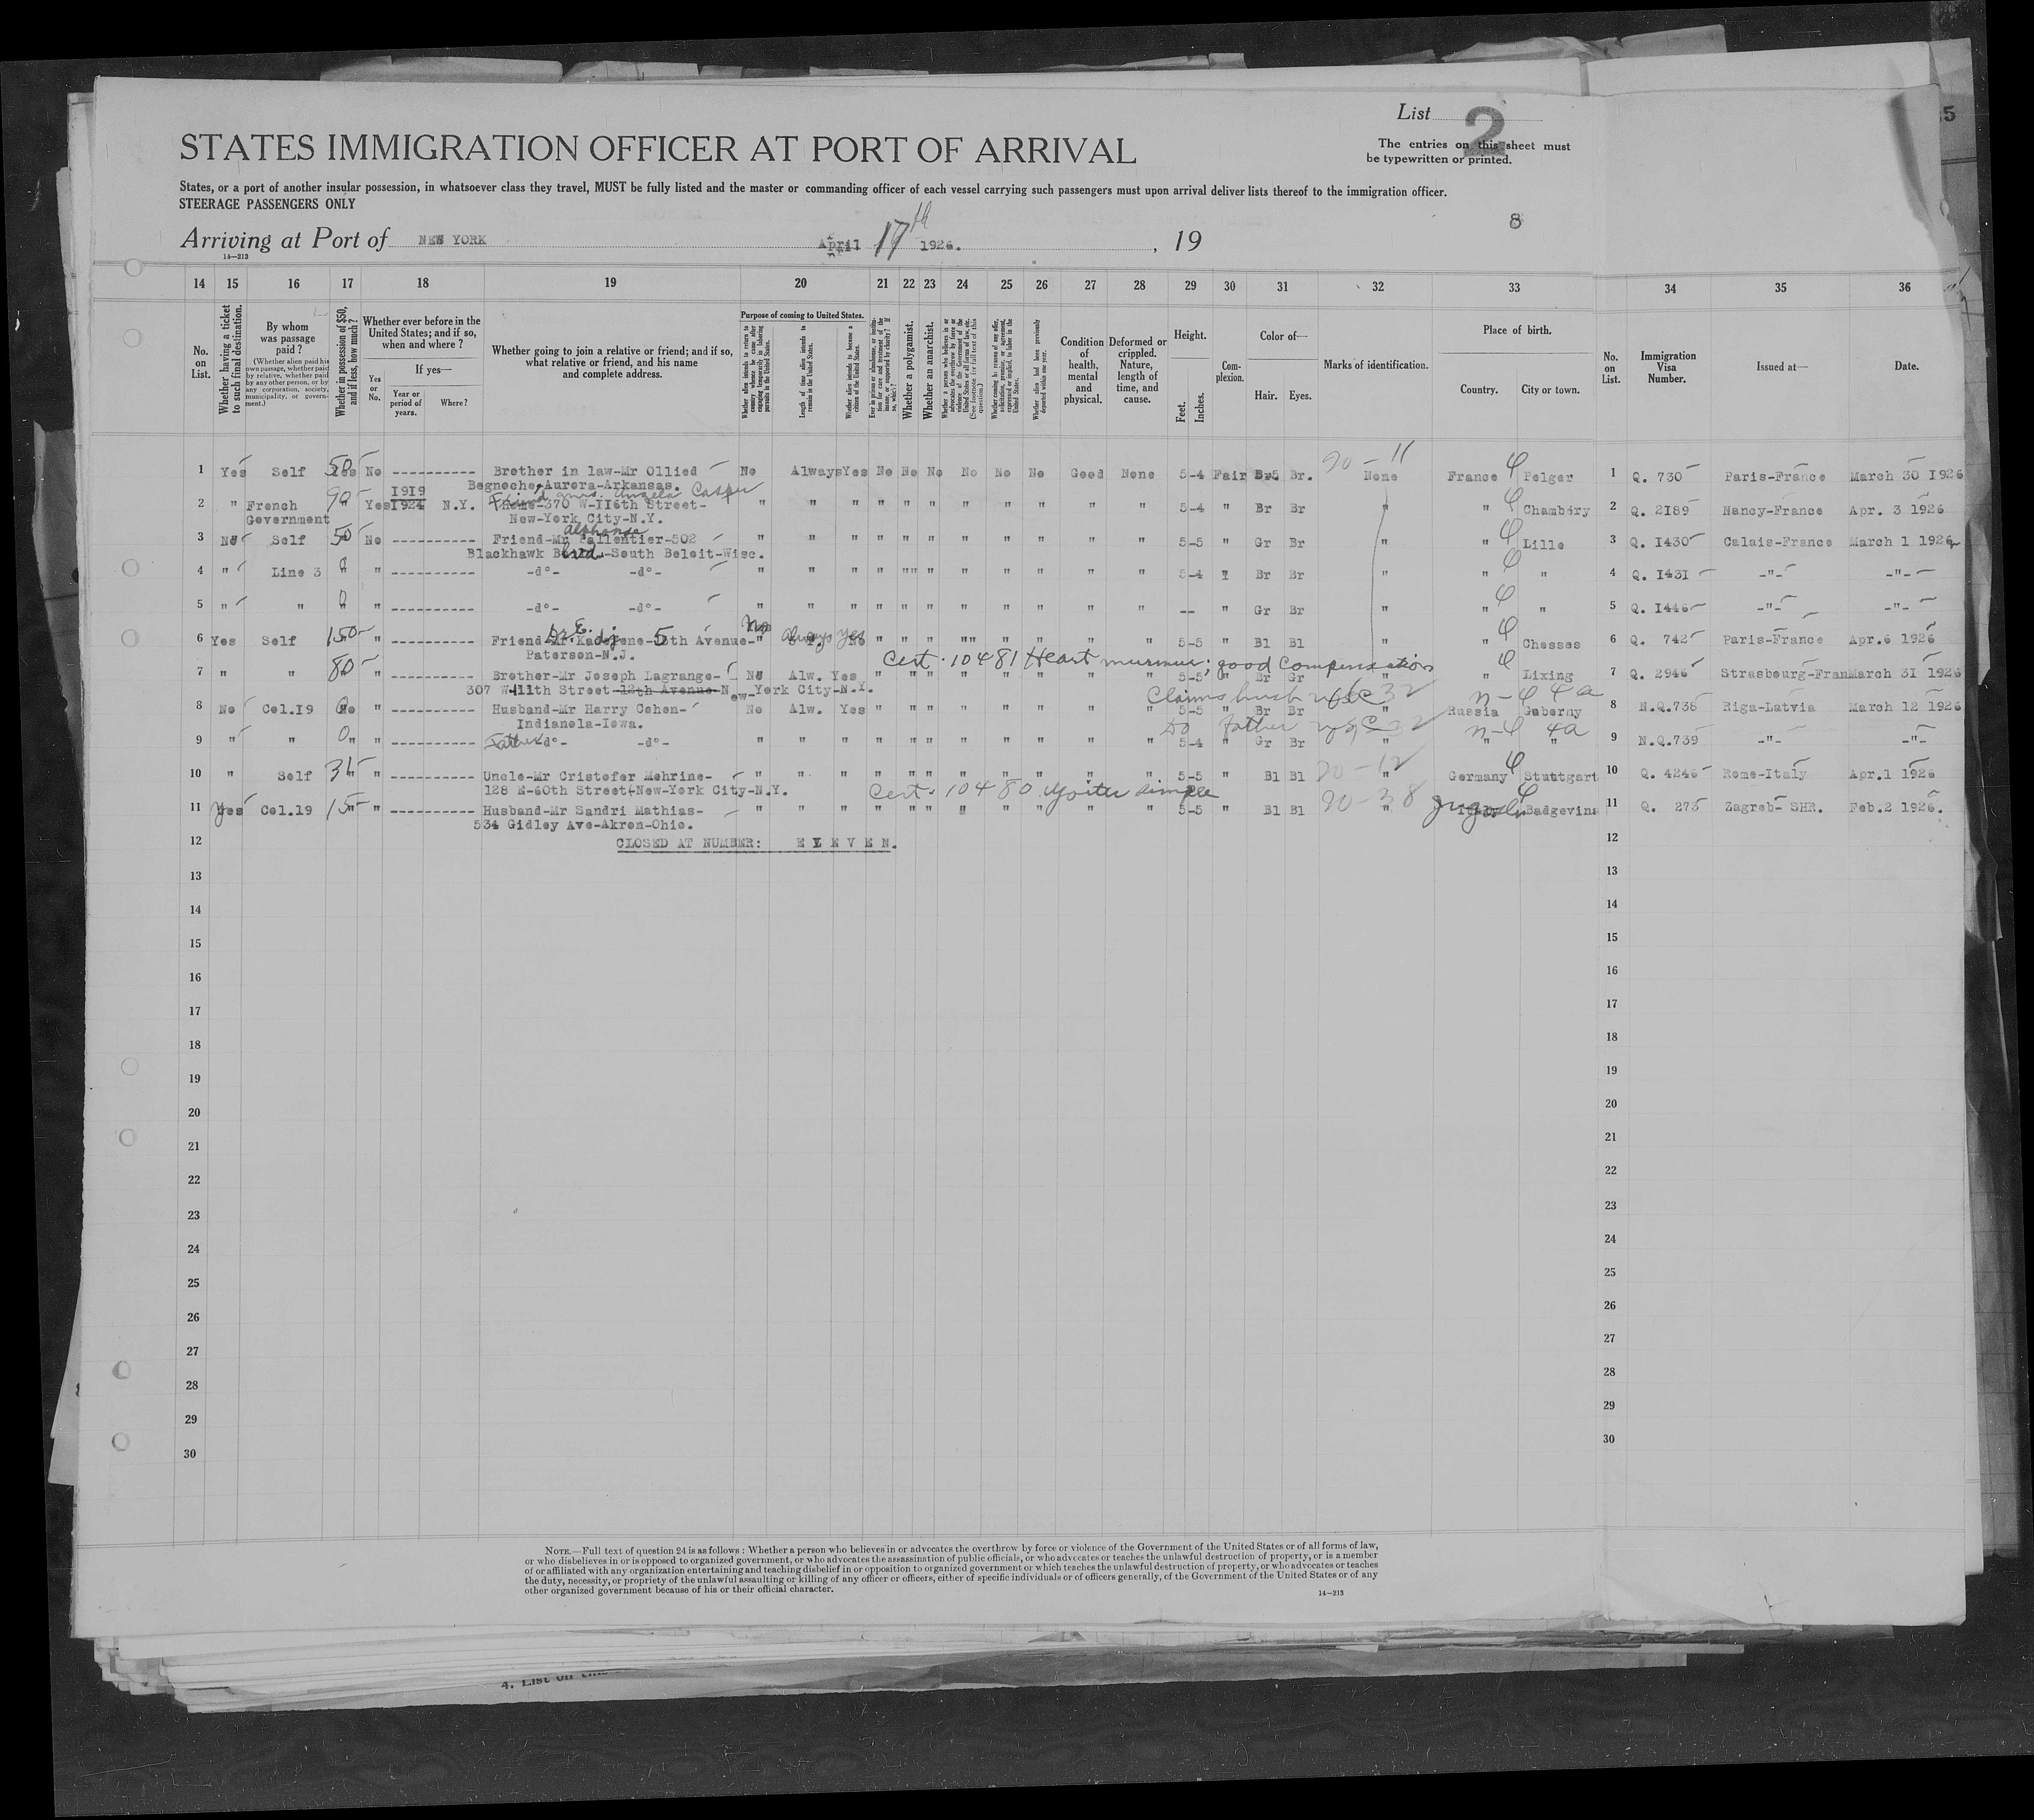 List 2
The entries on this sheet must
be typewritten or printed.
STATES IMMIGRATION OFFICER AT PORT OF ARRIVAL
States, or a port of another insular possession, in whatsoever class they travel, MUST be fully listed and the master or commanding officer of each vessel carrying such passengers must upon arrival deliver lists thereof to the immigration officer.
STEERAGE PASSENGERS ONLY
8
Arriving at Port of NEW YORK April 17th 1926. , 19
14—213
14 15 16 17 18 19 20 21 22 23 24 25 26 27 28 29 30 31 32 33 34 35 36
No. on List.
Whether having a ticket to such final destination.
By whom was passage paid?
(Whether alien paid his own passage, whether paid by relative, whether paid by any other person, or by any corporation, society, municipality, or government.)
Whether in possession of $50, and if less, how much?
Whether ever before in the United States; and if so, when and where?
Yes or No.
If yes—
Year or period of years.
Where?
Whether going to join a relative or friend; and if so, what relative or friend, and his name and complete address.
Purpose of coming to United States.
Whether alien intends to return to country whence he came after engaging temporarily in laboring pursuits in the United States.
Length of time alien intends to remain in the United States.
Whether alien intends to become a citizen of the United States.
Ever in prison or almshouse, or institution for care and treatment of the insane, or supported by charity? If so, which?
Whether a polygamist.
Whether an anarchist.
Whether a person who believes in or advocates the overthrow by force or violence of the Government of the United States or all forms of law, etc. (See footnote for full text of this question.)
Whether coming by reason of any offer, solicitation, promise, or agreement, expressed or implied, to labor in the United States.
Whether alien had been previously deported within one year.
Condition of health, mental and physical.
Deformed or crippled. Nature, length of time, and cause.
Height.
Feet. Inches.
Complexion.
Color of—
Hair. Eyes.
Marks of identification.
Place of birth.
Country. City or town.
No. on List.
Immigration Visa Number.
Issued at—
Date.
90 – 11
1 Yes Self 50 Yes No ---------- Brother in law-Mr Ollied No Always Yes No No No No No No Good None 5-4 Fair Br. None France Felger 1 Q. 730 Paris-France March 30 1926
Begnoche-Aurora-Arkansas.
Friend Mrs. Angela Casper
2 " French Government 90 " Yes 1919 1924 N.Y. 370 W-116th Street- " " " " " " " " " " " 5-4 " Br Br " " Chambéry 2 Q. 2189 Nancy-France Apr. 3 1926
New-York City-N.Y.
Alphonse
3 No Self 50 No ---------- Friend-Mr Pallentier-502 " " " " " " " " " " " 5-5 " Gr Br " " Lille 3 Q. 1430 Calais-France March 1 1926
Blackhawk Blvd-South Beloit-Wisc.
4 " Line 3 0 " ---------- -d°- -d°- " " " " "" " " " " " " 5-4 " Br Br " " " 4 Q. 1431 -"- -"-
5 " " 0 " ---------- -d°- -d°- " " " " " " " " " " " -- " Gr Br " " " 5 Q. 1446 -"- -"-
Dr. E.
6 Yes Self 150 " ---------- Friend 5th Avenue- No Always Yes " " " "" " " " " 5-5 " Bl Bl " " Chesses 6 Q. 742 Paris-France Apr.6 1926
Paterson-N.J.
Cert. 10481 Heart murmur; good compensation
7 " " 80 " ---------- Brother-Mr Joseph Lagrange- No Alw. Yes " " " " " " " " 5-5 " Br Gr " " Lixing 7 Q. 2946 Strasbourg-Fran March 31 1926
307 W 11th Street 12th Avenue New-York City-N.Y.
Claims husb USC 32 n-4 4a
8 No Col.19 0 " ---------- Husband-Mr Harry Cohen- No Alw. Yes " " " " " " " " 5-5 " Br Br " Russia Guberny 8 N.Q.738 Riga-Latvia March 12 1926
Indianola-Iowa.
Do father USC 32 n-4 4a
9 " " 0 " ---------- Father d°- -d°- " " " " " " " " " " " 5-4 " Gr Br " " " 9 N.Q.739 -"- -"-
10 " Self 35 " ---------- Uncle-Mr Cristofer Mehrine- " " " " " " " " " " " 5-5 " Bl Bl 90-12 " Germany Stuttgart 10 Q. 4246 Rome-Italy Apr.1 1926
128 E-60th Street-New-York City-N.Y.
Cert. 10480 goitre simple
11 Yes Col.19 15 " ---------- Husband-Mr Sandri Mathias- " " " " " " " " " " " 5-5 " Bl Bl 90-38 " Jugoslv Badgevina 11 Q. 273 Zagreb- SHR. Feb.2 1926.
534 Gidley Ave-Akron-Ohio.
12 CLOSED AT NUMBER: E L E V E N. 12
13 13
14 14
15 15
16 16
17 17
18 18
19 19
20 20
21 21
22 22
23 23
24 24
25 25
26 26
27 27
28 28
29 29
30 30
NOTE.—Full text of question 24 is as follows: Whether a person who believes in or advocates the overthrow by force or violence of the Government of the United States or of all forms of law,
or who disbelieves in or is opposed to organized government, or who advocates the assassination of public officials, or who advocates or teaches the unlawful destruction of property, or is a member
of or affiliated with any organization entertaining and teaching disbelief in or opposition to organized government or which teaches the unlawful destruction of property, or who advocates or teaches
the duty, necessity, or propriety of the unlawful assaulting or killing of any officer or officers, either of specific individuals or of officers generally, of the Government of the United States or of any
other organized government because of his or their official character.
14—213